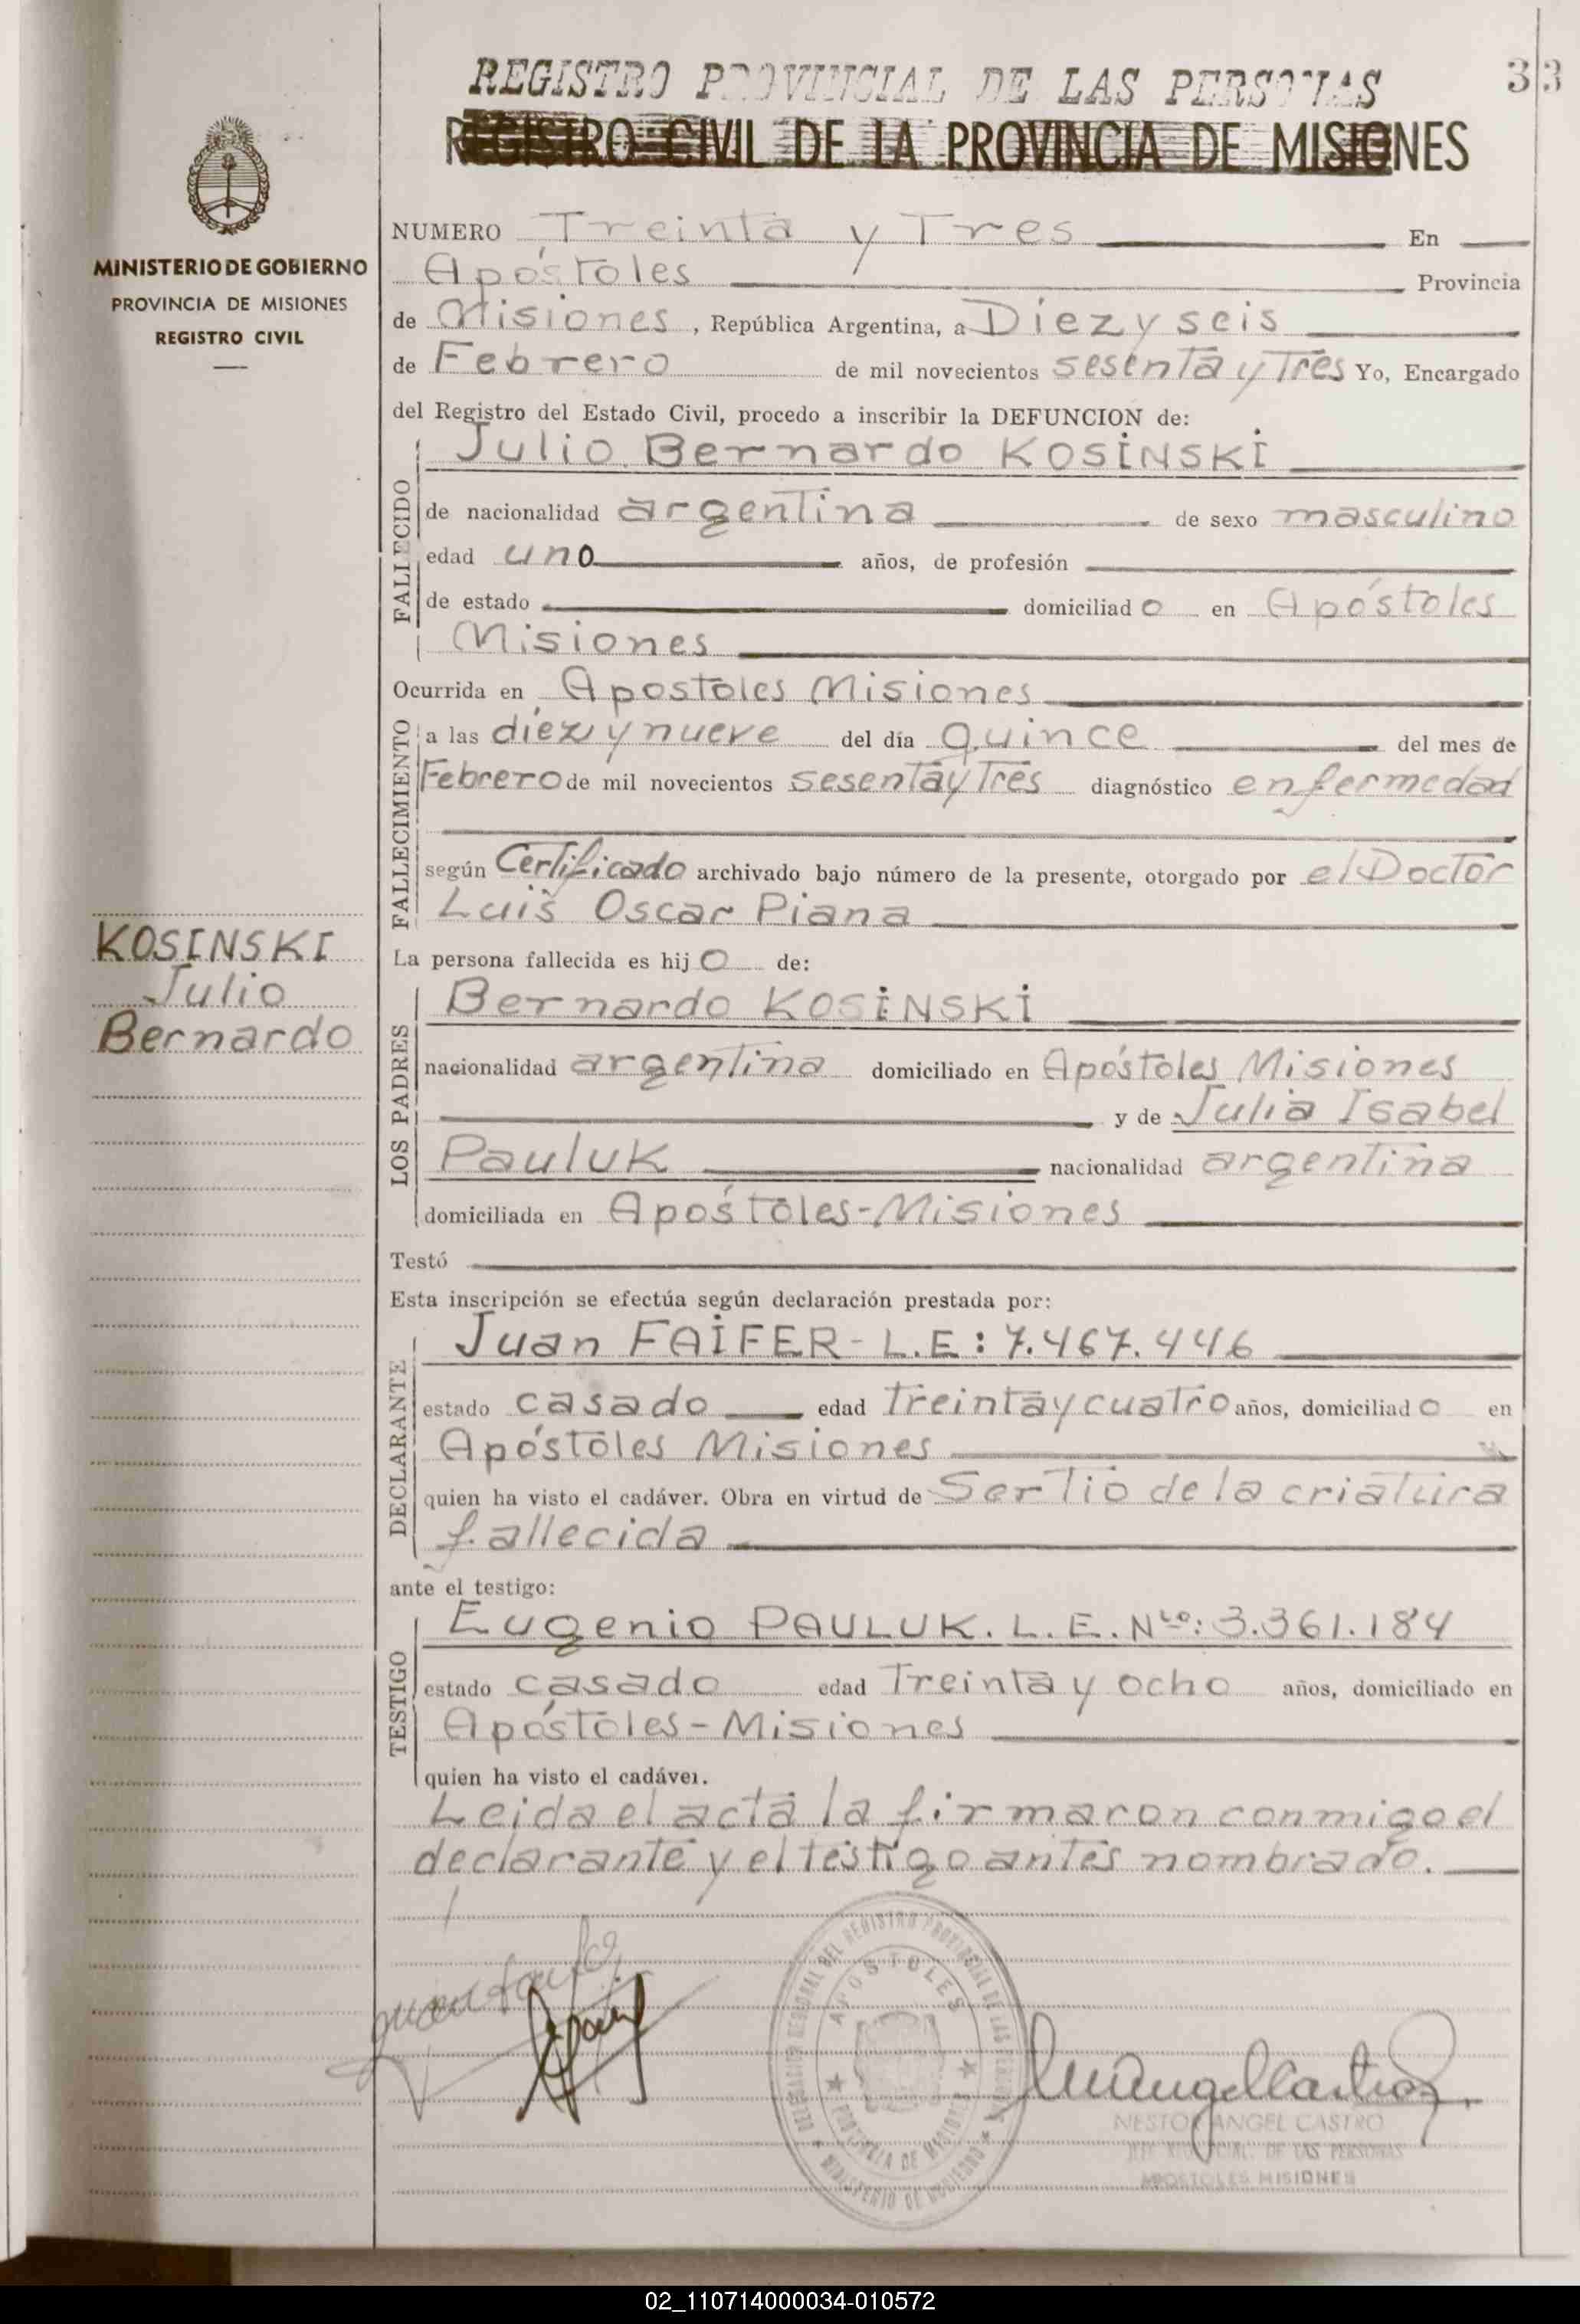 REGISTRO PROVINCIAL DE LAS PERSONAS
33
REGISTRO CIVIL DE LA PROVINCIA DE MISIONES
MINISTERIO DE GOBIERNO
PROVINCIA DE MISIONES
REGISTRO CIVIL
NUMERO Treinta y Tres En
Apóstoles Provincia
de Misiones, República Argentina, a Diez y seis
de Febrero de mil novecientos sesenta y Tres Yo, Encargado
del Registro del Estado Civil, procedo a inscribir la DEFUNCION de:
FALLECIDO
Julio Bernardo KOSiNSKi
de nacionalidad argentina de sexo masculino
edad uno años, de profesión
de estado domiciliado en Apóstoles
Misiones
Ocurrida en Apostoles Misiones
FALLECIMIENTO
a las diez y nueve del día quince del mes de
Febrero de mil novecientos sesenta y Tres diagnóstico enfermedad
según Certificado archivado bajo número de la presente, otorgado por el Doctor
Luis Oscar Piana
KOSINSKI
Julio
Bernardo
La persona fallecida es hijo de:
LOS PADRES
Bernardo KOSiNSKi
nacionalidad argentina domiciliado en Apóstoles Misiones
y de Julia Isabel
Pauluk nacionalidad argentina
domiciliada en Apóstoles-Misiones
Testó
Esta inscripción se efectúa según declaración prestada por:
DECLARANTE
Juan FAiFER - L.E: 7.467.446
estado casado edad treinta y cuatro años, domiciliado en
Apóstoles Misiones
quien ha visto el cadáver. Obra en virtud de Ser Tio de la criatura
fallecida
ante el testigo:
TESTIGO
Eugenio PAULUK. L.E. Nro: 3.361.184
estado casado edad Treinta y ocho años, domiciliado en
Apóstoles-Misiones
quien ha visto el cadáver.
Leida el acta la firmaron conmigo el
declarante y el testigo antes nombrado.
DELEGACION REGIONAL DEL REGISTRO PROVINCIAL DE LAS PERSONAS
APOSTOLES
PROVINCIA DE MISIONES
MINISTERIO DE GOBIERNO
NESTOR ANGEL CASTRO
DE LAS PERSONAS
APOSTOLES MISIONES
02_110714000034-010572